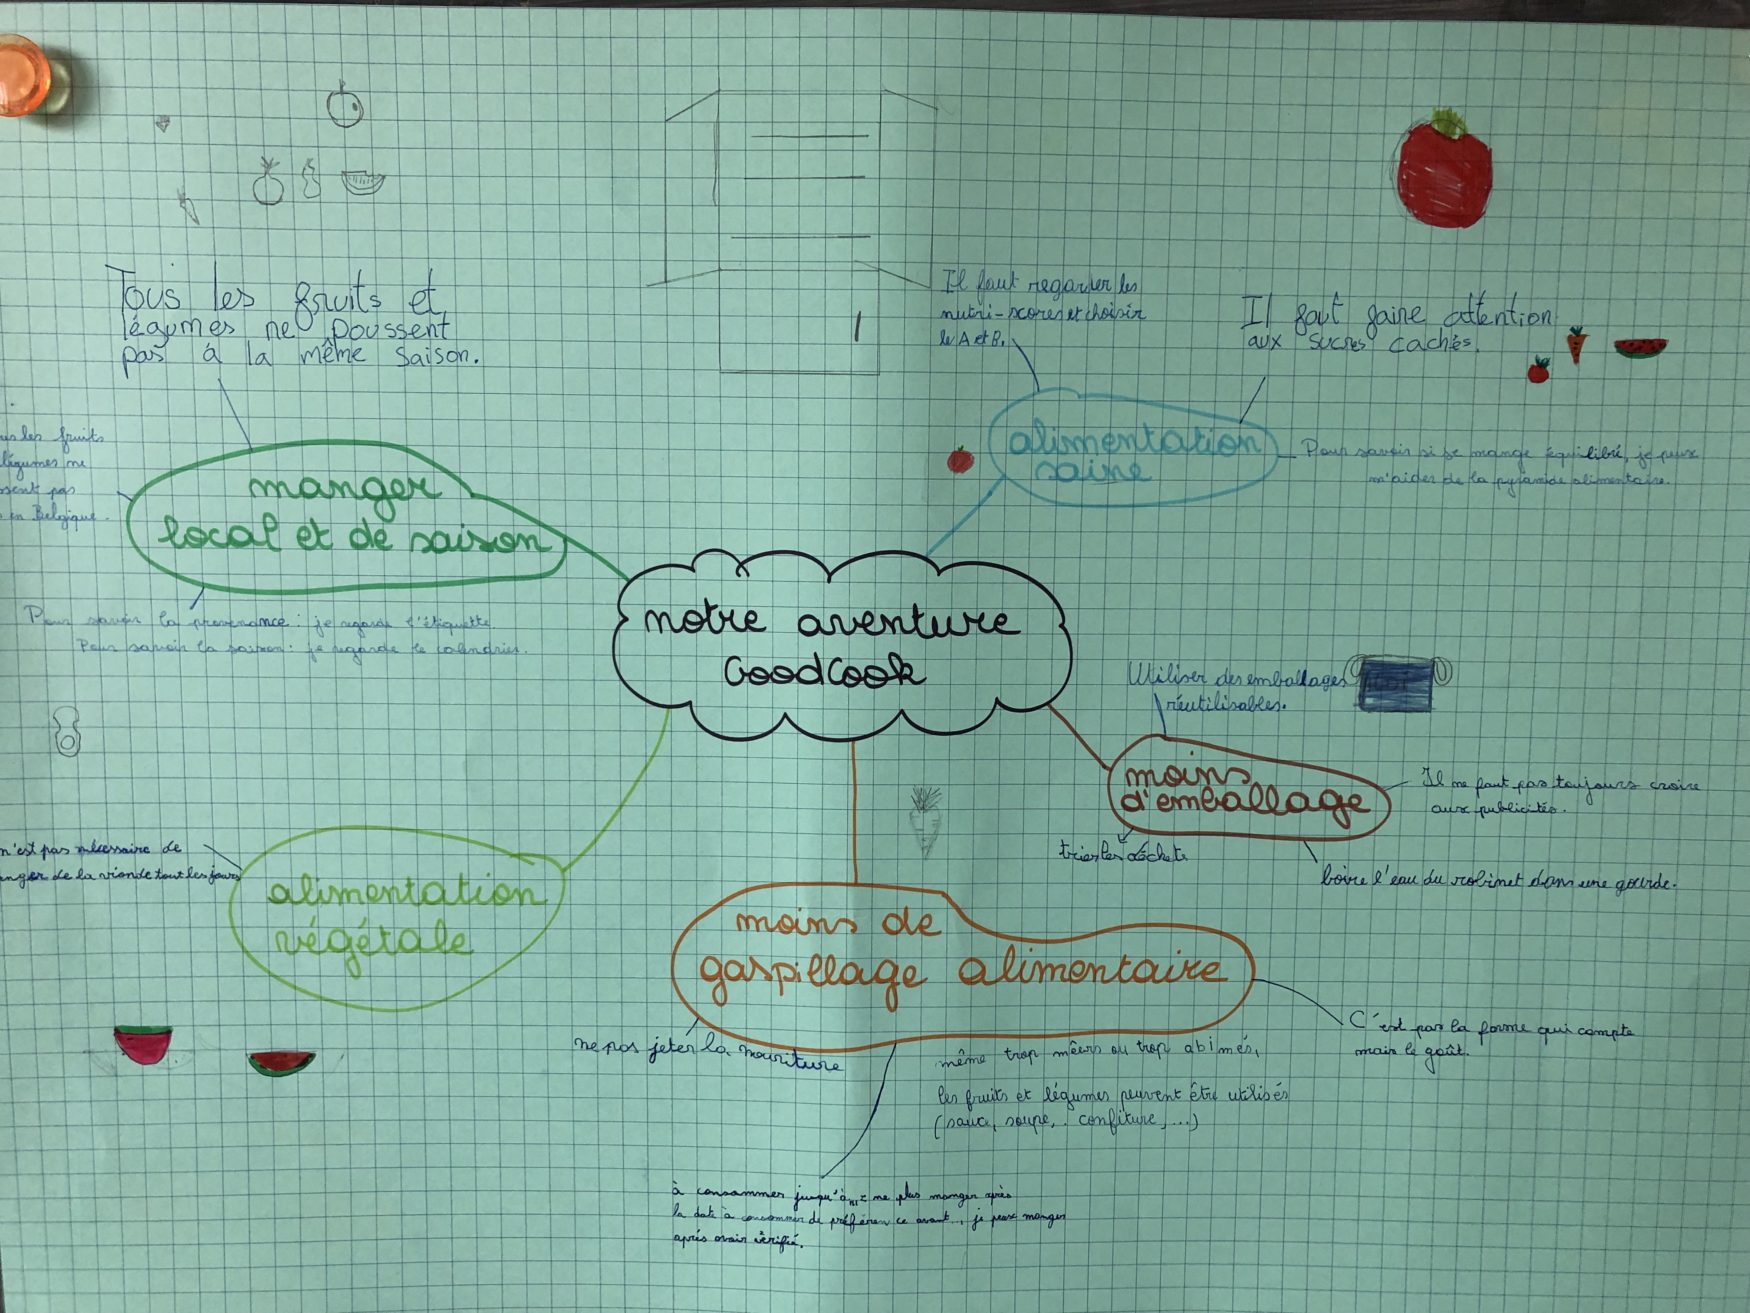 Tous les fruits et
légumes ne poussent
pas à la même saison.
Il faut regarder les
nutri-scores et choisir
le A et B.
Il faut faire attention
aux sucres cachés.
les fruits
légumes ne
pas
en Belgique.
manger
local et de saison
alimentation
saine
Pour savoir si je mange équilibré, je peux
m'aider de la pyramide alimentaire.
Pour savoir la provenance : je regarde l'étiquette
Pour savoir la saison : je regarde le calendrier.
notre aventure
GoodCook
Utiliser des emballages
réutilisables.
moins
d'emballage
Il ne faut pas toujours croire
aux publicités.
trier les déchets
boire l'eau du robinet dans une gourde.
n'est pas nécessaire de
de la viande tout les jours
alimentation
végétale
moins de
gaspillage alimentaire
ne pas jeter la nouriture
C'est pas la forme qui compte
mais le goût.
même trop mêurs ou trop abimés,
les fruits et légumes peuvent être utilisés
(sauce, soupe, confiture, ...)
à consommer jusqu'à ne plus manger après
la date à consommer de préférence avant... je peux manger
après avoir vérifié.